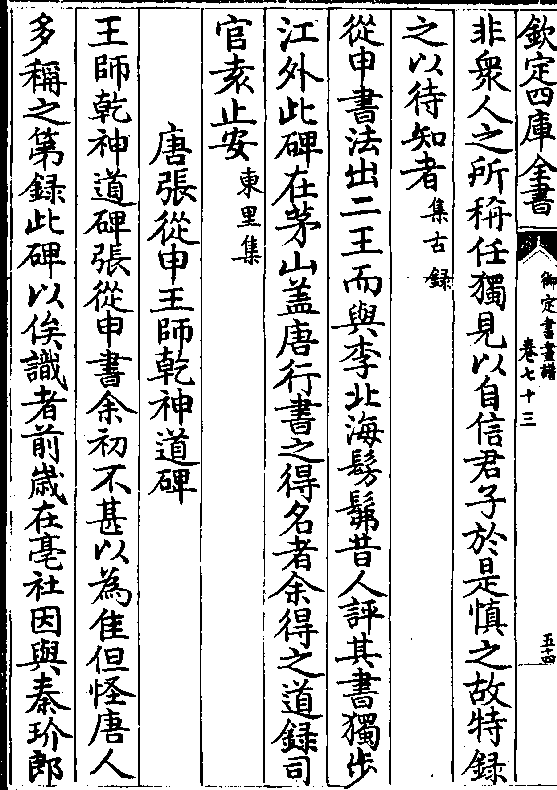 欽定四庫全書
御定書畫譜
卷七十三
五十四
非衆人之所稱任獨見以自信君子於是慎之故特録
之以待知者集古録
從申書法出二王而與李北海髣髴昔人評其書獨步
江外此碑在茅山盖唐行書之得名者余得之道録司
官袁止安東里集
唐張從申王師乾神道碑
王師乾神道碑張從申書余初不甚以為佳但怪唐人
多稱之第録此碑以俟識者前嵗在亳社因與秦玠郎